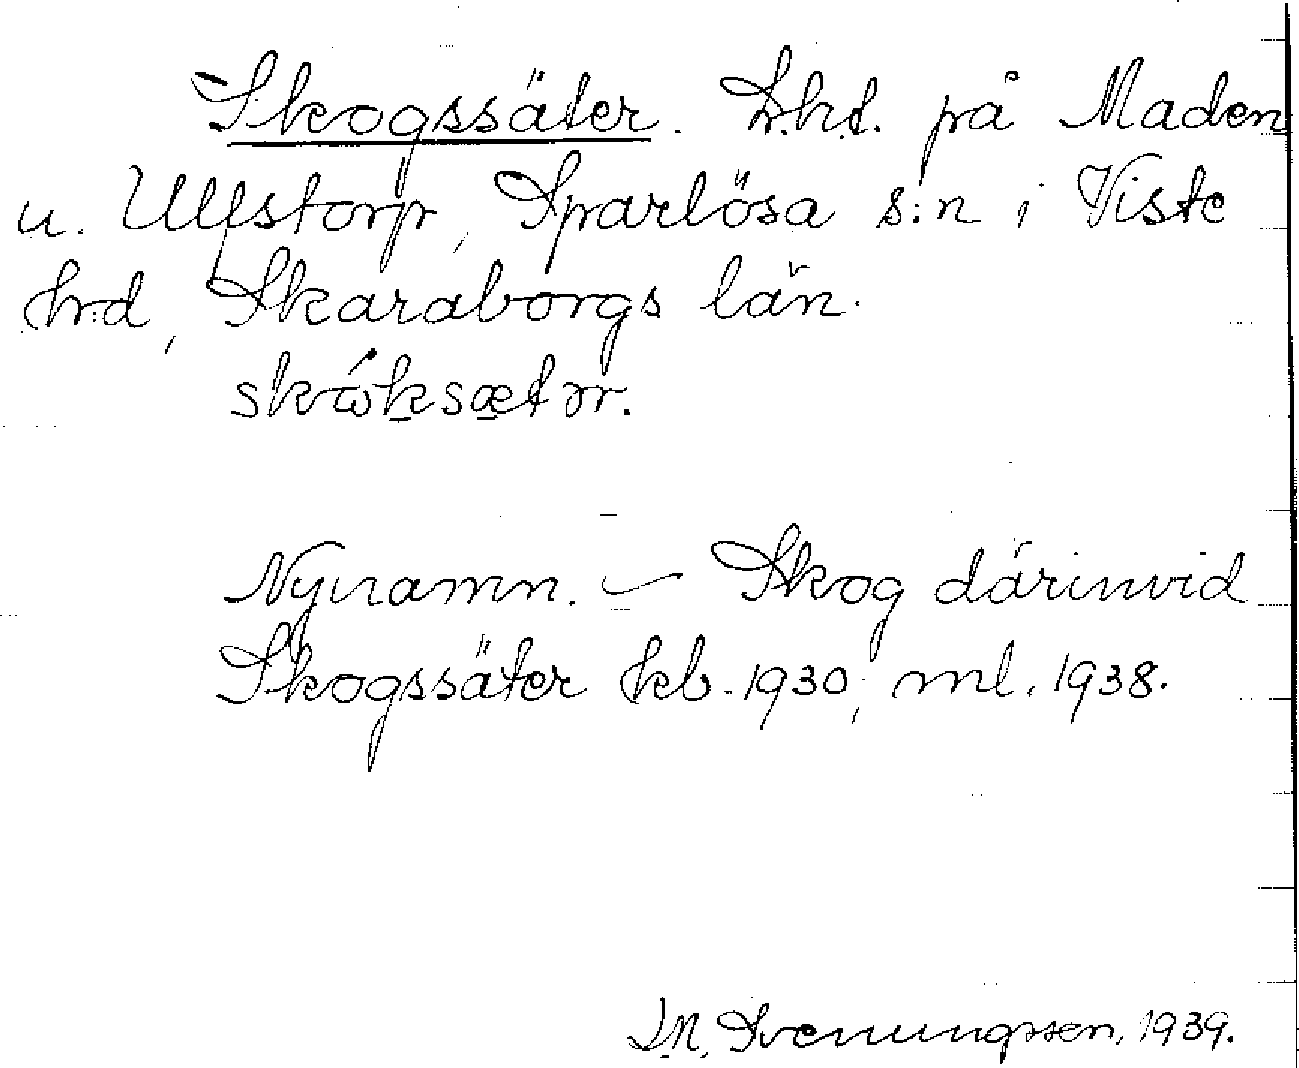 Skogssäter. Lht. på Maden
u. Ulfstorp, Sparlösa s:n i Viste
hrd, Skaraborgs län.
skóksætər.
Nynamn. – Skog därinvid
Skogssäter kb. 1930, ml. 1938.
Svenungsson, 1939.